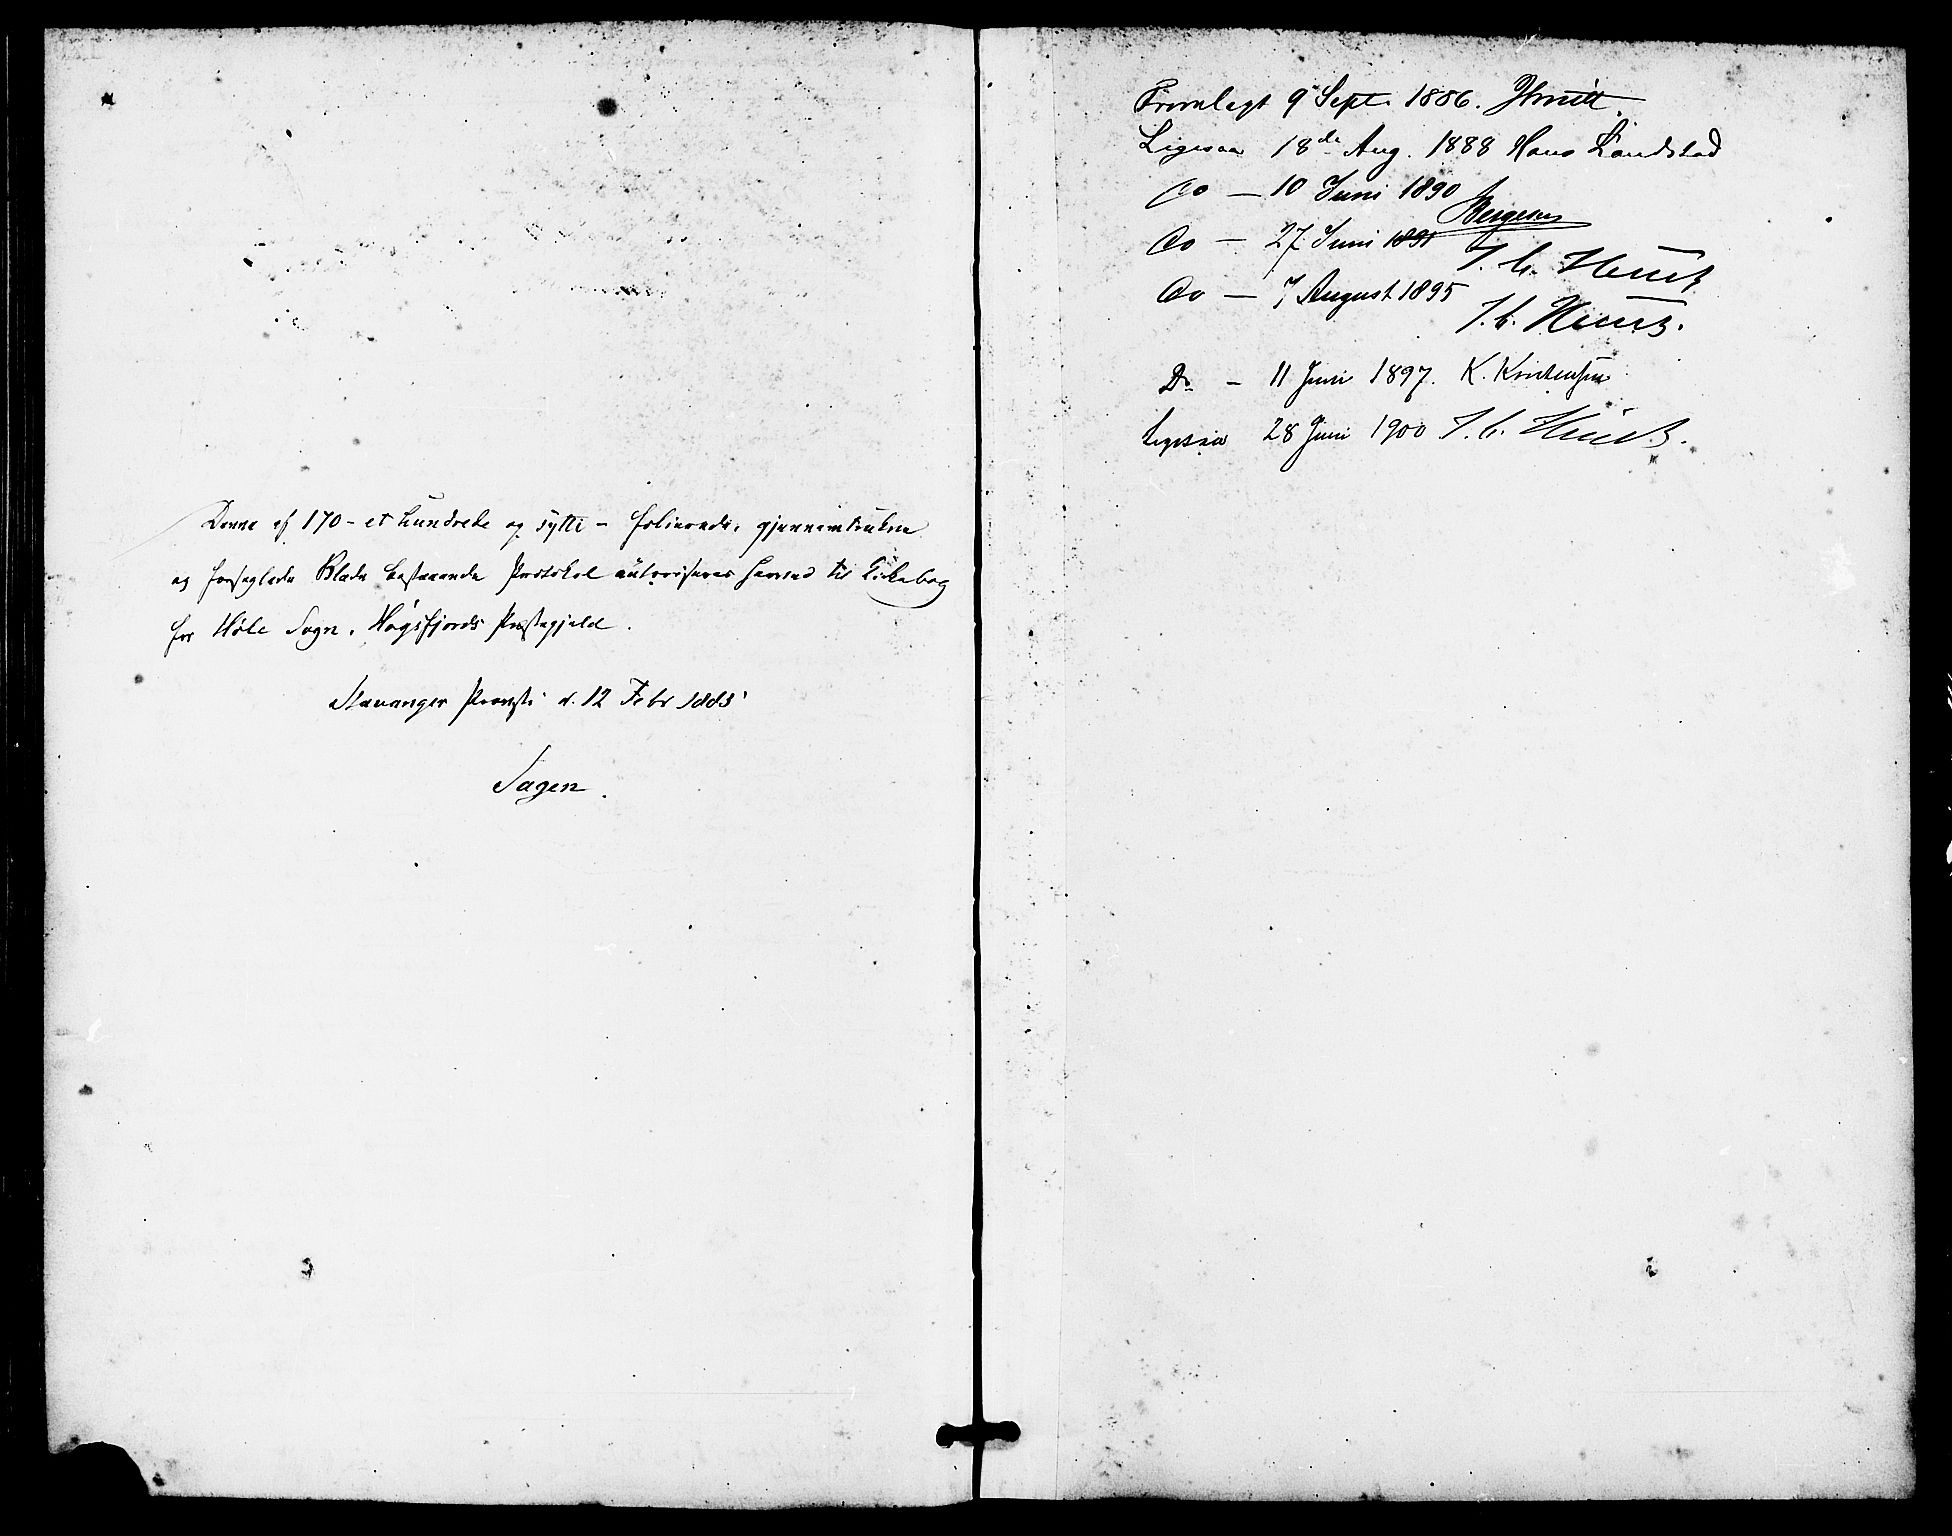 Denne af 170 - et hundrede og sytti - folierede, gjennemtrukne
og forseglede Blade bestaaende Protokol autoriseres herved til Kirkebog
for Høle Sogn, Høgsfjords Præstegjeld.
Stavanger Provsti d. 12 Febr 1885
Sagen.
Fremlagt 9 Sept. 1886.
Ligesaa 18de Aug. 1888 Hans Landstad
Do — 10 Juni 1890
Bergesen
Do — 27 Juni 1891
J. C. Heuch
Do — 7 August 1895
J. C. Heuch.
Do - 11 Juni 1897. K. Kristensen
Ligesaa 28 Juni 1900 J. C. Heuch.